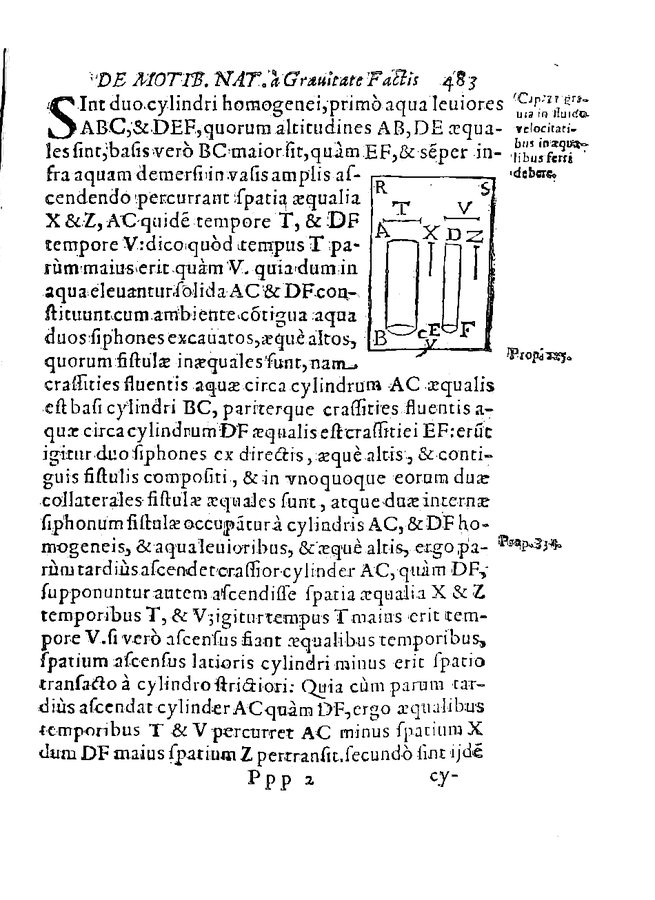 DE MOTIB. NAT. à Grauitate Factis 483
SInt duo cylindri homogenei, primò aqua leuiores
ABC, & DEF, quorum altitudines AB, DE æqua-
les sint; basis verò BC maior sit, quàm EF, & sēper in-
fra aquam demersi in vasis amplis as-
cendendo percurrant spatia æqualia
X & Z, AC quidē tempore T, & DF
tempore V: dico quòd tempus T pa-
rùm maius erit quàm V. quia dum in
aqua eleuantur solida AC & DF con-
stituunt cum ambiente cōtigua aqua
duos siphones excauatos, æquè altos,
quorum fistulæ inæquales sunt, nam
crassities fluentis aquæ circa cylindrum AC æqualis
est basi cylindri BC, pariterque crassities fluentis a-
quæ circa cylindrum DF æqualis est crassitiei EF: erūt
igitur duo siphones ex directis, æquè altis, & conti-
guis fistulis compositi, & in vnoquoque eorum duæ
collaterales fistulæ æquales sunt, atque duæ internæ
siphonum fistulæ occupātur à cylindris AC, & DF ho-
mogeneis, & aqua leuioribus, & æquè altis, ergo pa-
rùm tardiùs ascendet crassior cylinder AC, quàm DF,
supponuntur autem ascendisse spatia æqualia X & Z
temporibus T, & V; igitur tempus T maius erit tem-
pore V. si verò ascensus fiant æqualibus temporibus,
spatium ascensus latioris cylindri minus erit spatio
transacto à cylindro strictiori: Quia cùm parum tar-
diùs ascendat cylinder AC quàm DF, ergo æqualibus
temporibus T & V percurret AC minus spatium X
dum DF maius spatium Z pertransit. secundò sint ijdē
Ppp 2 cy-
Cap. 11 gra-
uia in fluido
velocitati-
bus inæqua-
libus ferri
debere.
R S
T V
A X D Z
B C E F
Y
Prop.
Prop. 334.